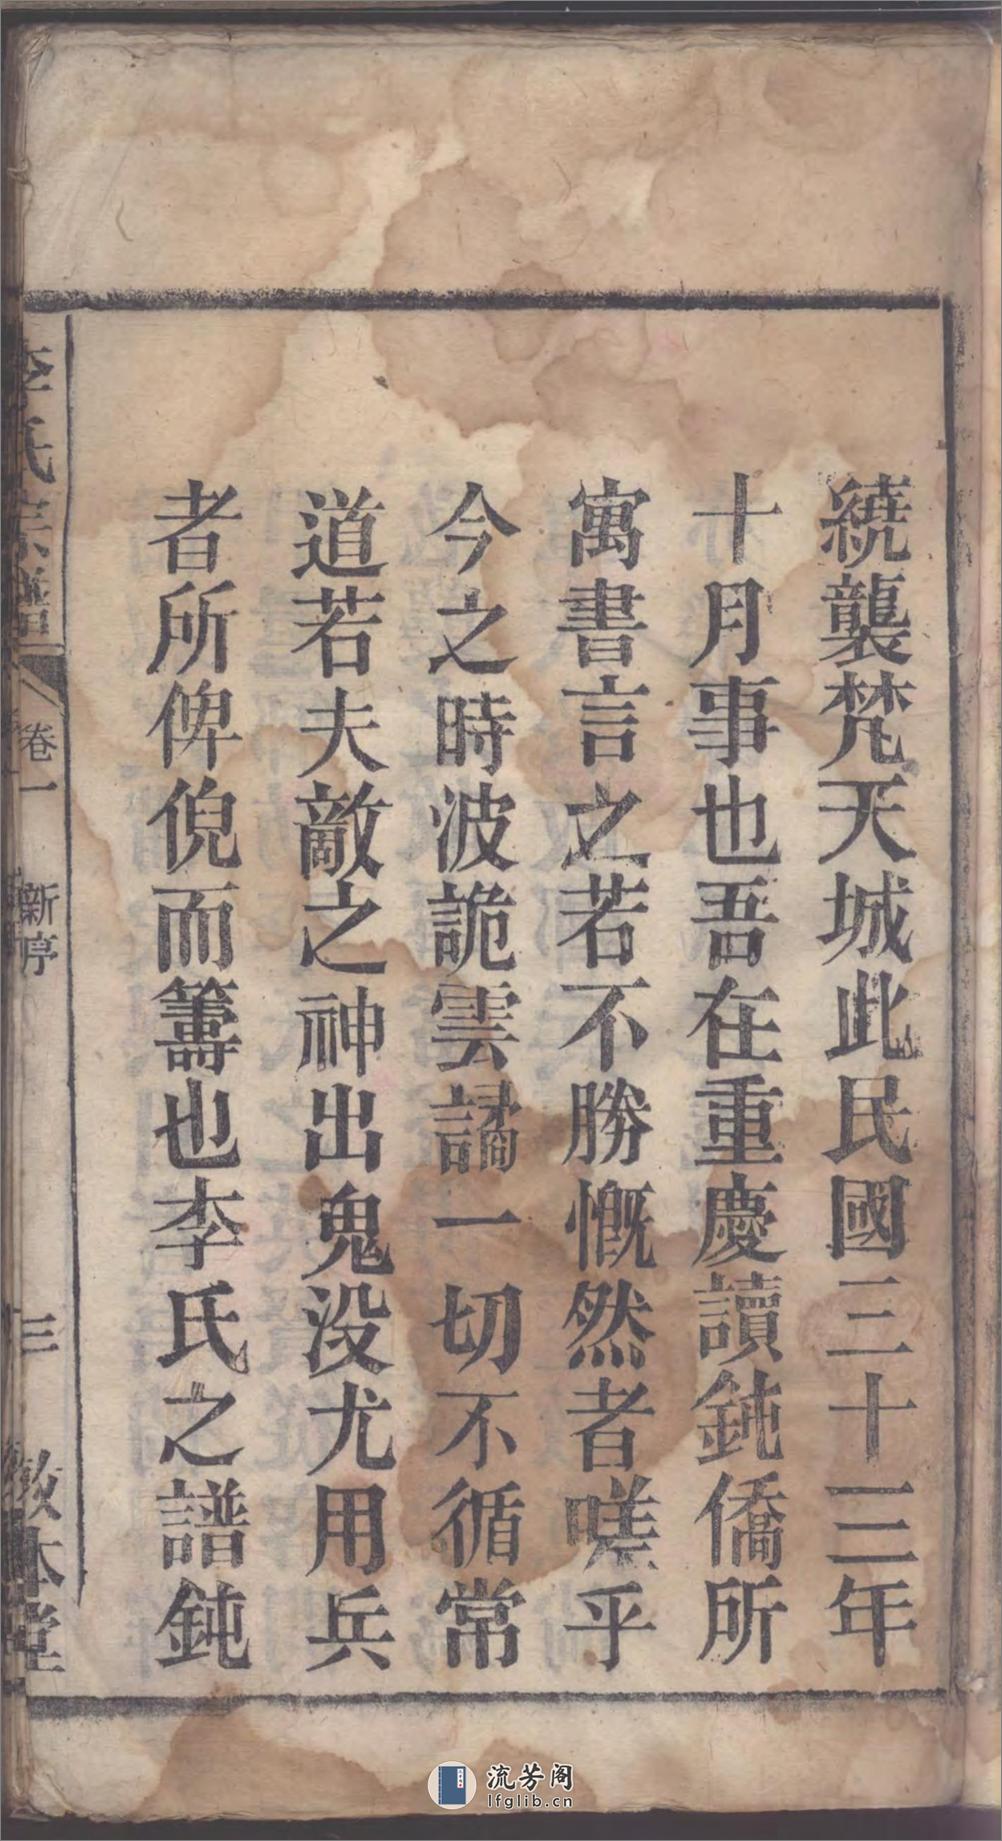 繞襲梵天城此民國三十三年
十月事也吾在重慶讀鈍僑所
寓書言之若不勝慨然者嗟乎
今之時波詭雲譎一切不循常
道若夫敵之神出鬼没尤用兵
者所俾倪而籌也李氏之譜鈍
李氏宗譜 卷一 新序 三 敦本堂
流芳阁
lfglib.cn